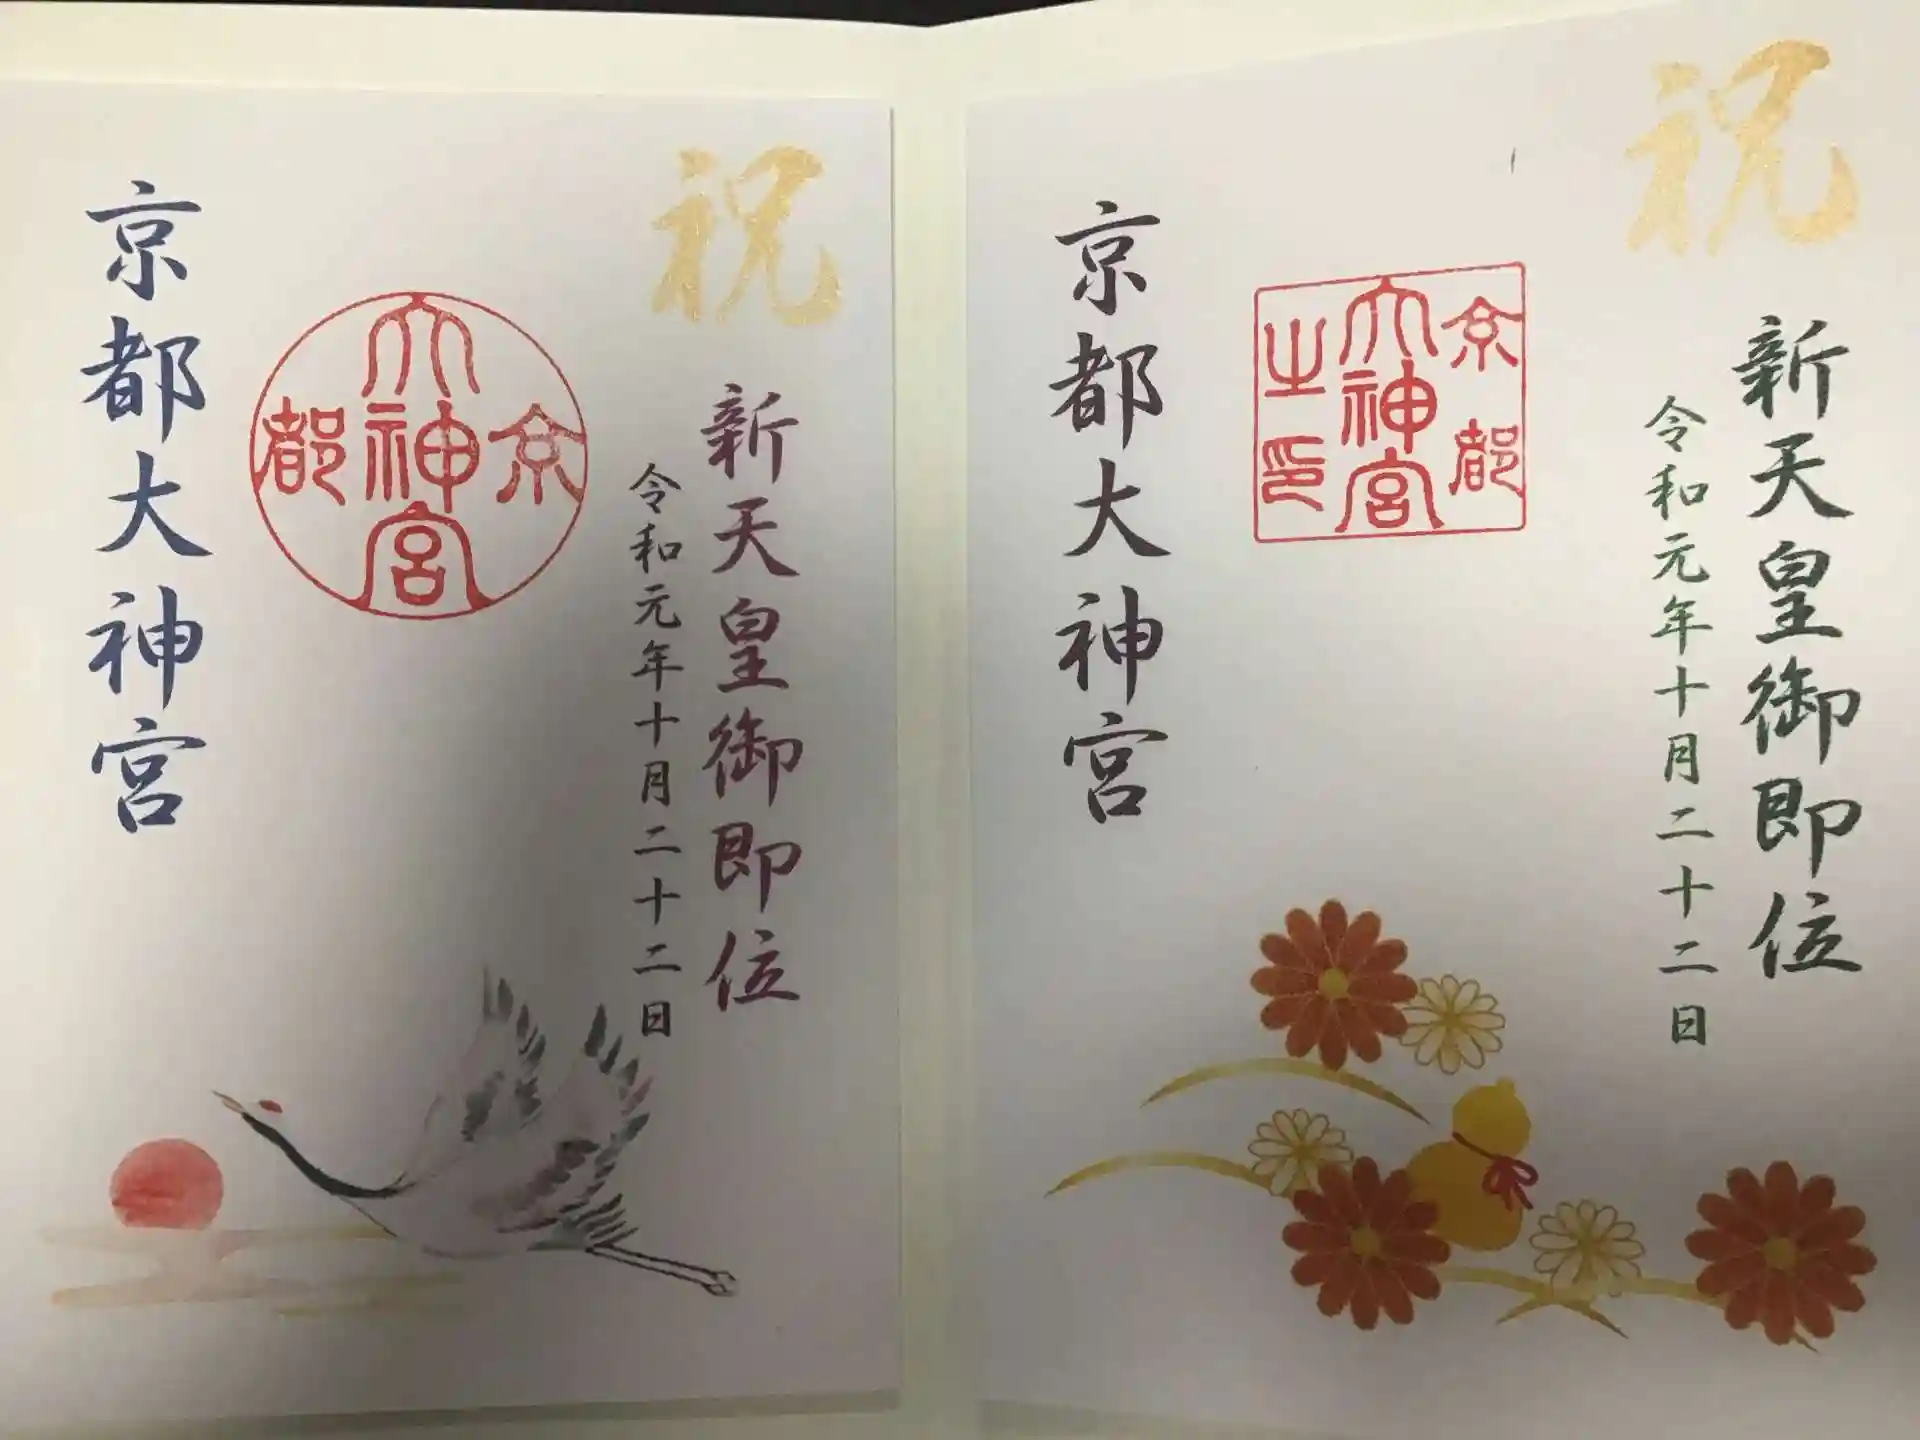 祝
新天皇御即位
令和元年十月二十二日
京都大神宮
京都大神宮之印
祝
新天皇御即位
令和元年十月二十二日
京都大神宮
京都大神宮